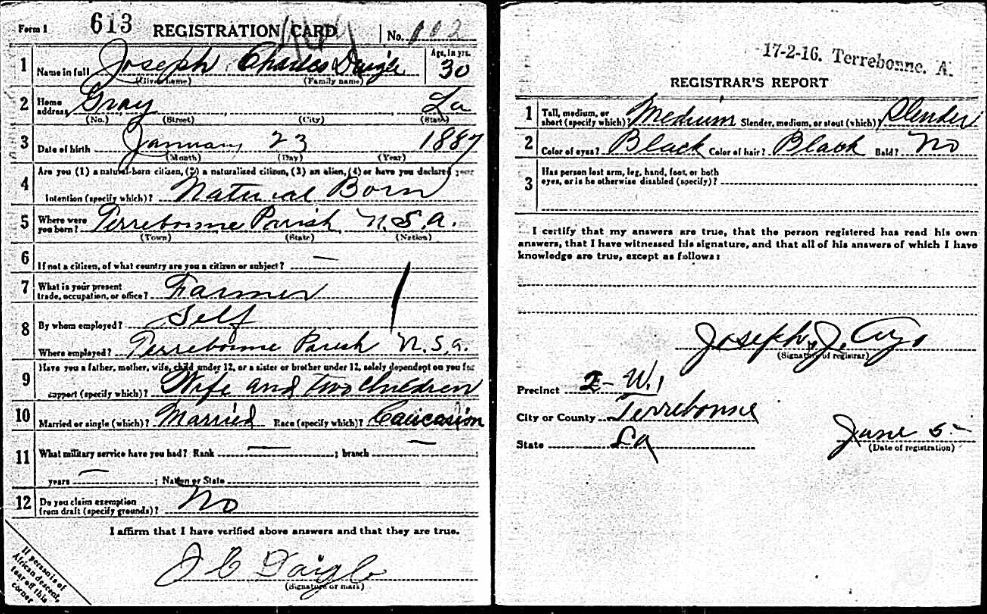 Form 1 613 REGISTRATION CARD No. 112
1 Name in full Joseph Charles Daigle Age, in yrs. 30
(Given name) (Family name)
2 Home address Gray La
(No.) (Street) (City) (State)
3 Date of birth January 23 1887
(Month) (Day) (Year)
4 Are you (1) a natural-born citizen, (2) a naturalized citizen, (3) an alien, (4) or have you declared your
intention (specify which)? Natural Born
5 Where were you born? Terrebonne Parish U.S.A.
(Town) (State) (Nation)
6 If not a citizen, of what country are you a citizen or subject? —
7 What is your present trade, occupation, or office? Farmer
8 By whom employed? Self
Where employed? Terrebonne Parish U.S.A.
9 Have you a father, mother, wife, child under 12, or a sister or brother under 12, solely dependent on you for
support (specify which)? Wife and two Children
10 Married or single (which)? Married Race (specify which)? Caucasion
11 What military service have you had? Rank — ; branch —
years — ; Nation or State
12 Do you claim exemption from draft (specify grounds)? No
I affirm that I have verified above answers and that they are true.
J C Daigle
(Signature or mark)
If person is of
African descent,
tear off this
corner
17-2-16. Terrebonne. A.
REGISTRAR'S REPORT
1 Tall, medium, or short (specify which)? Medium Slender, medium, or stout (which)? Slender
2 Color of eyes? Black Color of hair? Black Bald? No
3 Has person lost arm, leg, hand, foot, or both
eyes, or is he otherwise disabled (specify)?
I certify that my answers are true, that the person registered has read his own
answers, that I have witnessed his signature, and that all of his answers of which I have
knowledge are true, except as follows:
Joseph J. Ayo
(Signature of registrar)
Precinct 2-W.1
City or County Terrebonne
State La June 5-
(Date of registration)